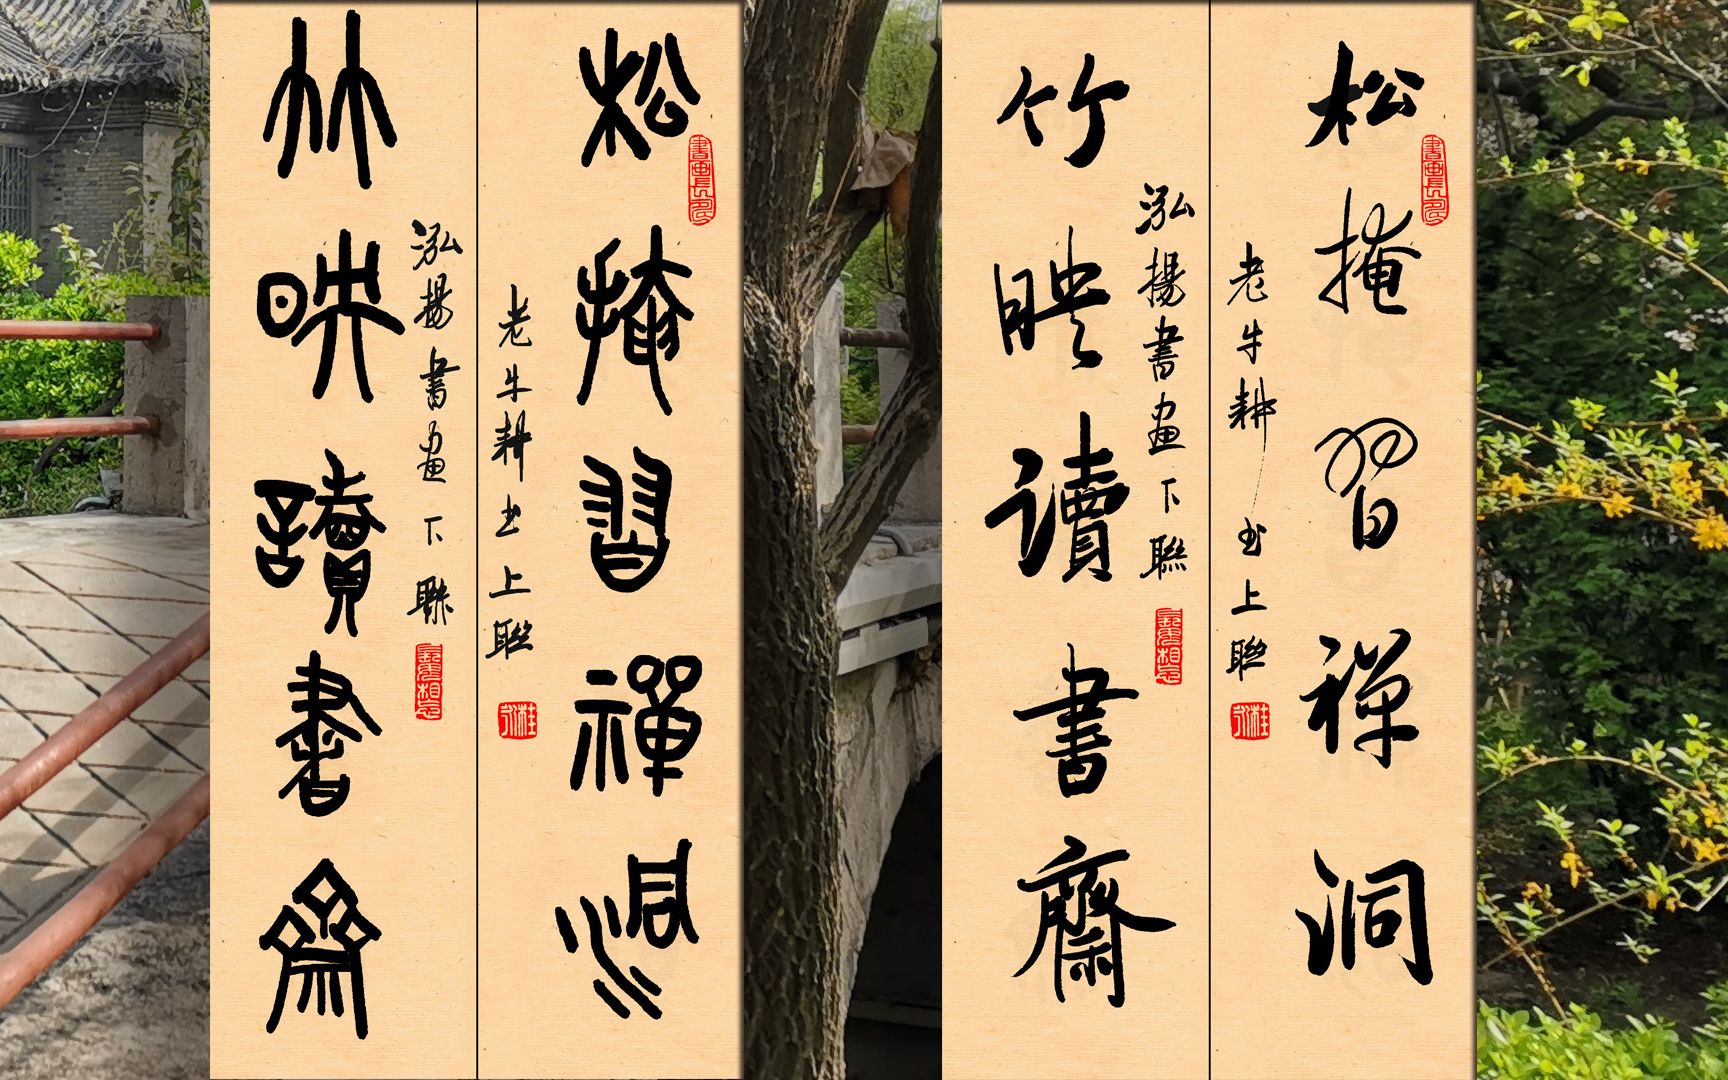 松掩習禪洞
老牛耕书上聯
竹映讀書齋
泓揚書畫下聯
松掩習禪洞
老牛耕书上聯
竹映讀書齋
泓揚書畫下聯